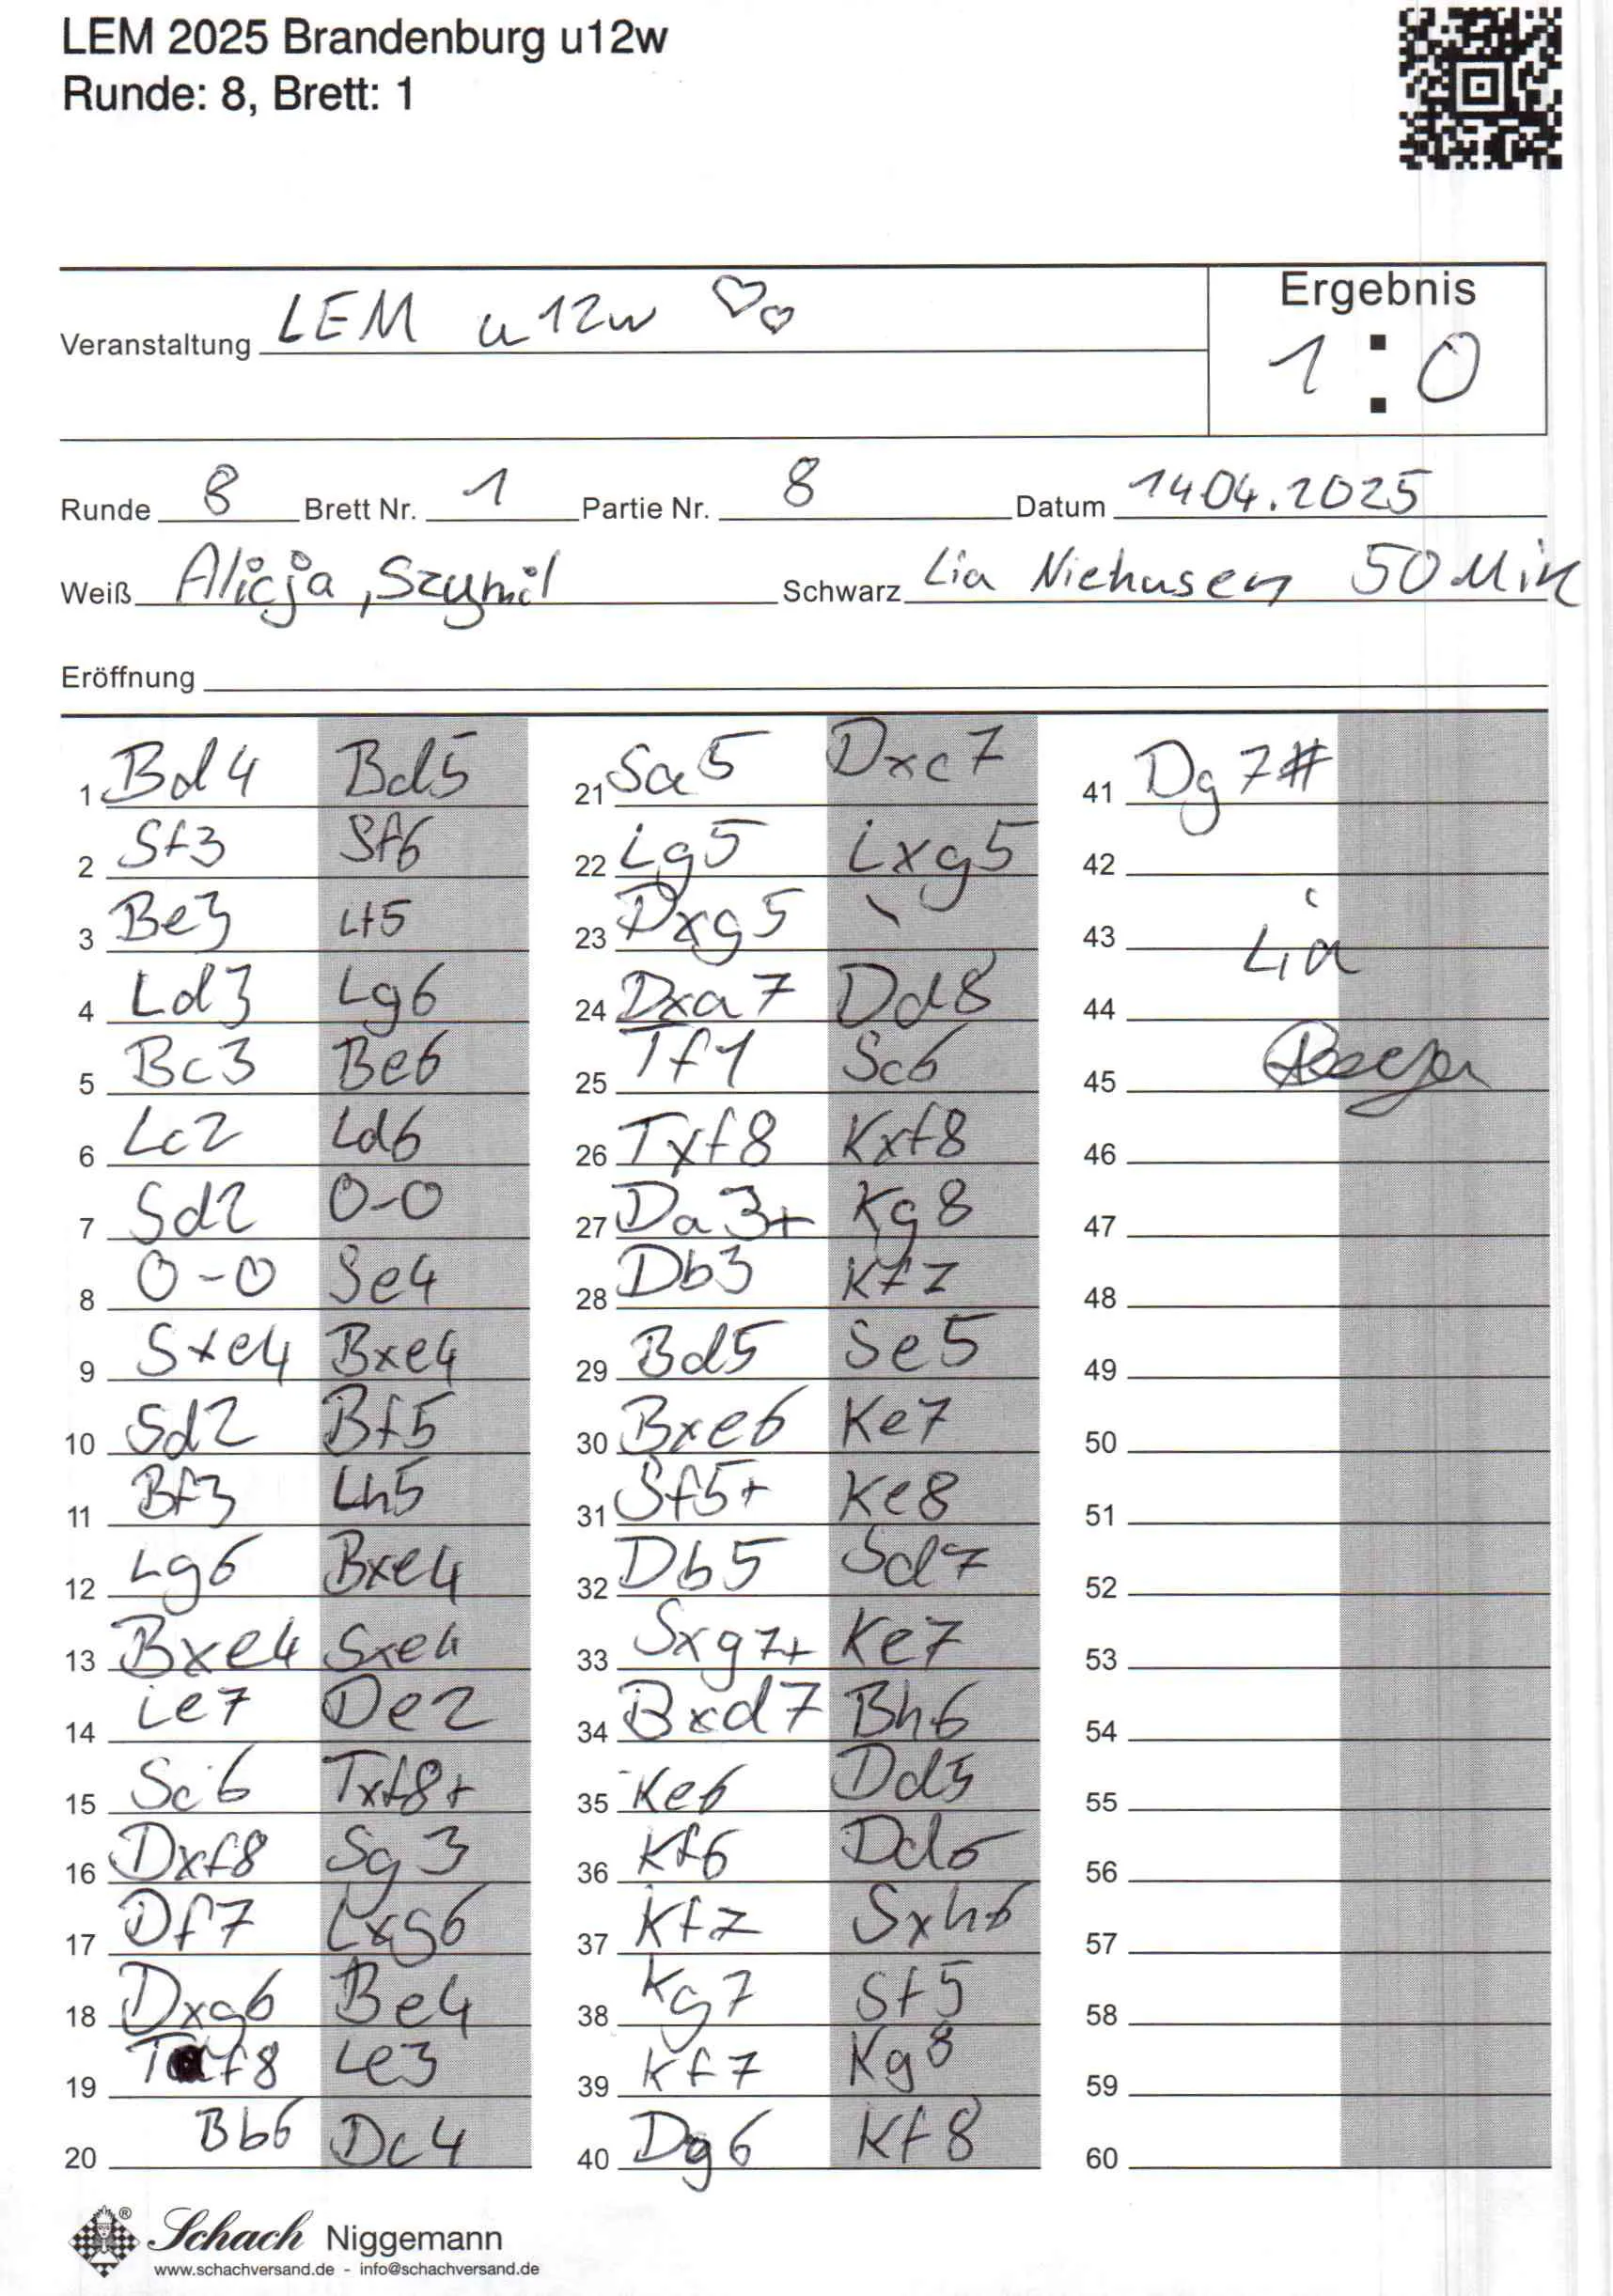 LEM 2025 Brandenburg u12w
Runde: 8, Brett: 1
Ergebnis
Veranstaltung LEM u12w
1 : 0
Runde 8 Brett Nr. 1 Partie Nr. 8 Datum 14.04.2025
Weiß Alicja, Szymil Schwarz Lia Niehusen 50 Min
Eröffnung
1 Bd4 Bd5
2 Sf3 Sf6
3 Be3 Lf5
4 Ld3 Lg6
5 Bc3 Be6
6 Lc2 Ld6
7 Sd2 0-0
8 0-0 Se4
9 Sxe4 Bxe4
10 Sd2 Bf5
11 Bf3 Lh5
12 Lg6 Bxe4
13 Bxe4 Sxe4
14 Le7 De2
15 Sc6 Txf8+
16 Dxf8 Sg3
17 Df7 Lxg6
18 Dxg6 Be4
19 Tf8 Le3
20 Bb6 Dc4
21 Sa5 Dxc7
22 Lg5 Lxg5
23 Dxg5 \
24 Dxa7 Dd8
25 Tf1 Sc6
26 Txf8 Kxf8
27 Da3+ Kg8
28 Db3 Kf7
29 Bd5 Se5
30 Bxe6 Ke7
31 Sf5+ Ke8
32 Db5 Sd7
33 Sxg7+ Ke7
34 Bxd7 Bh6
35 Ke6 Dd5
36 Kf6 Dd6
37 Kf7 Sxh6
38 Kg7 Sf5
39 Kf7 Kg8
40 Dg6 Kf8
41 Dg7#
42
43 Lia
44
45
46
47
48
49
50
51
52
53
54
55
56
57
58
59
60
Schach Niggemann
www.schachversand.de - info@schachversand.de